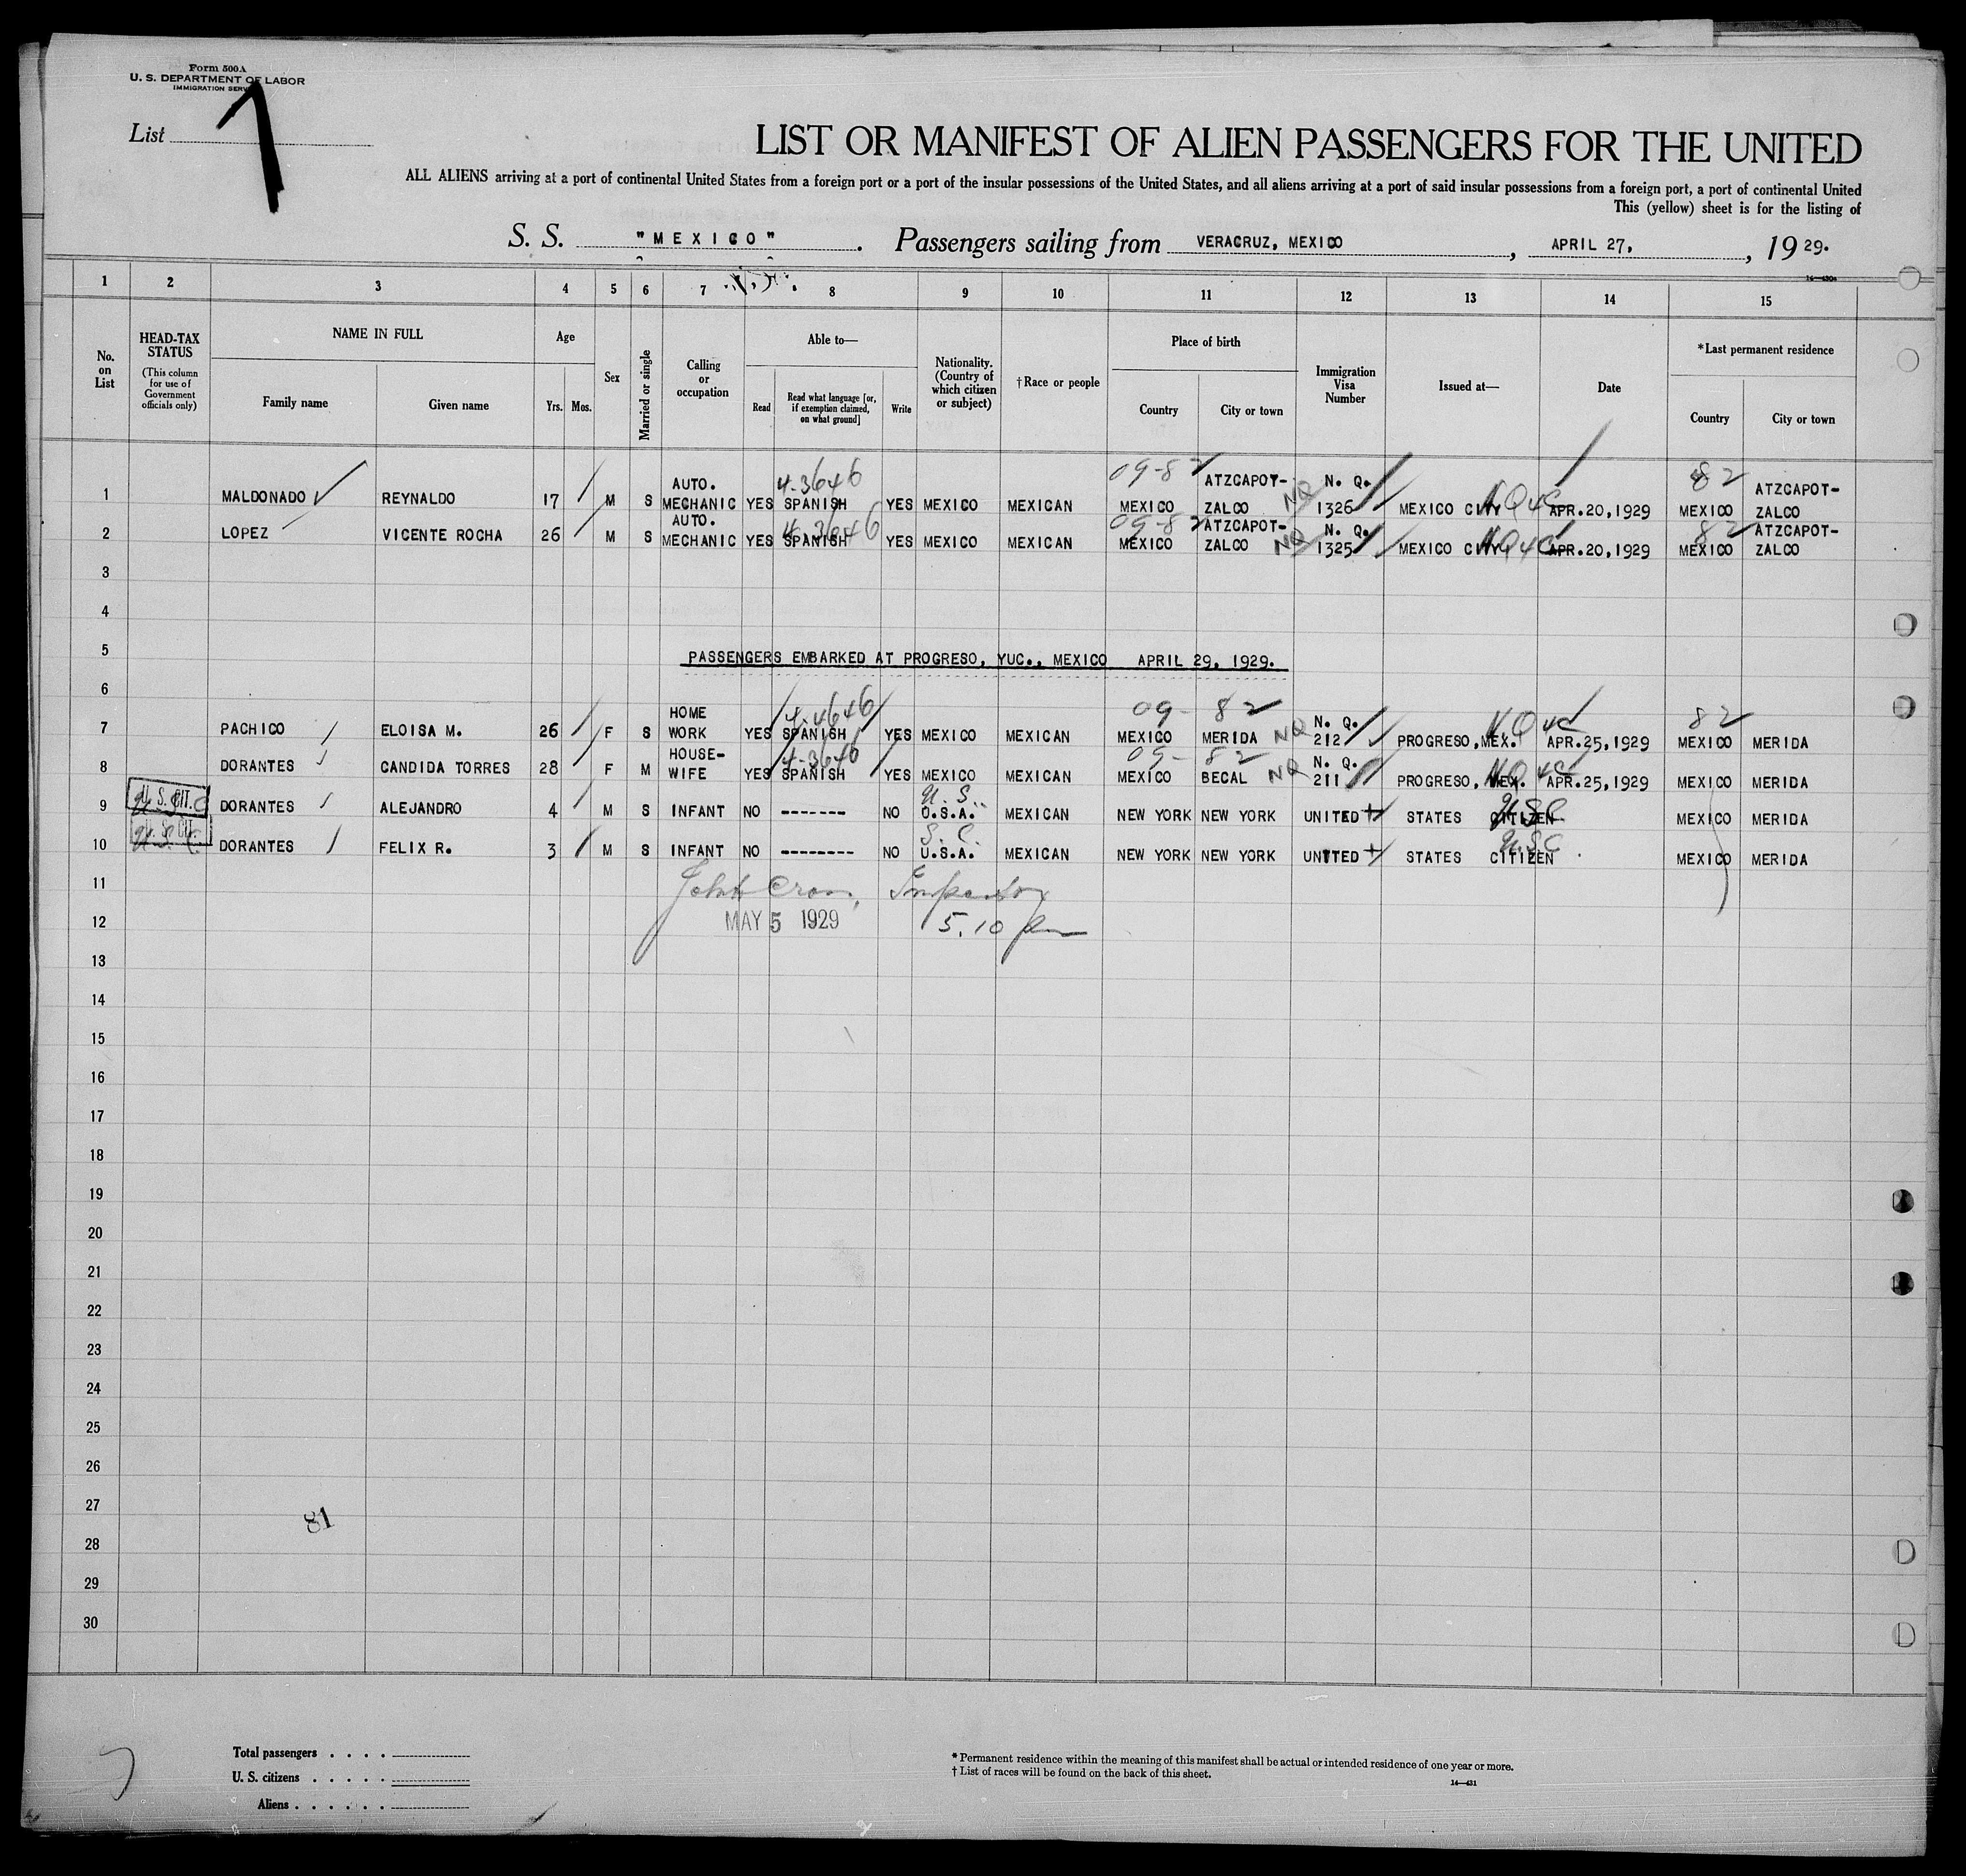 Form 500A
U. S. DEPARTMENT OF LABOR
IMMIGRATION SERV
List
LIST OR MANIFEST OF ALIEN PASSENGERS FOR THE UNITED
ALL ALIENS arriving at a port of continental United States from a foreign port or a port of the insular possessions of the United States, and all aliens arriving at a port of said insular possessions from a foreign port, a port of continental United
This (yellow) sheet is for the listing of
S. S. "MEXICO". Passengers sailing from VERACRUZ, MEXICO, APRIL 27, , 19 29.
1 2 3 4 5 6 7 8 9 10 11 12 13 14 15
No. on List
HEAD-TAX STATUS
(This column for use of Government officials only)
NAME IN FULL
Family name
Given name
Age
Yrs. Mos.
Sex
Married or single
Calling or occupation
Able to—
Read
Read what language [or, if exemption claimed, on what ground]
Write
Nationality. (Country of which citizen or subject)
†Race or people
Place of birth
Country
City or town
Immigration Visa Number
Issued at—
Date
*Last permanent residence
Country
City or town
1 MALDONADO REYNALDO 17 M S AUTO. MECHANIC YES 4-3646 SPANISH YES MEXICO MEXICAN 09-82 MEXICO ATZCAPOT-ZALCO NQ N. Q. 1326 MEXICO CITY, APR.20,1929 82 MEXICO ATZCAPOT-ZALCO
2 LOPEZ VICENTE ROCHA 26 M S AUTO. MECHANIC YES 4-3646 SPANISH YES MEXICO MEXICAN 09-82 MEXICO ATZCAPOT-ZALCO NQ N. Q. 1325 MEXICO CITY, APR.20,1929 82 MEXICO ATZCAPOT-ZALCO
3
4
5 PASSENGERS EMBARKED AT PROGRESO, YUC., MEXICO APRIL 29, 1929.
6
7 PACHICO ELOISA M. 26 F S HOME WORK YES 4-4646 SPANISH YES MEXICO MEXICAN 09- 82 MEXICO MERIDA NQ N. Q. 212 PROGRESO,MEX. APR.25,1929 82 MEXICO MERIDA
8 DORANTES CANDIDA TORRES 28 F M HOUSE-WIFE YES 4-3646 SPANISH YES MEXICO MEXICAN 09- 82 MEXICO BECAL NQ N. Q. 211 PROGRESO, MEX. APR.25,1929 MEXICO MERIDA
9 U. S. CIT. DORANTES ALEJANDRO 4 M S INFANT NO ------- NO U.S. U.S.A. MEXICAN NEW YORK NEW YORK UNITED STATES CITIZEN USC MEXICO MERIDA
10 U. S. CIT. DORANTES FELIX R. 3 M S INFANT NO -------- NO S. C. U.S.A. MEXICAN NEW YORK NEW YORK UNITED STATES CITIZEN USC MEXICO MERIDA
11 John Inspector
12 MAY 5 1929 5.10 pm
13
14
15
16
17
18
19
20
21
22
23
24
25
26
27
81
28
29
30
Total passengers . . . .
U. S. citizens . . . . .
Aliens . . . . . .
* Permanent residence within the meaning of this manifest shall be actual or intended residence of one year or more.
† List of races will be found on the back of this sheet.
14—431